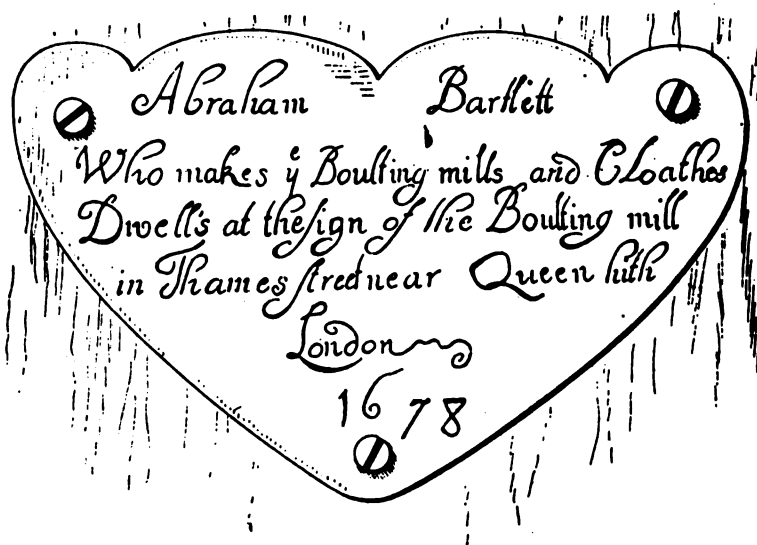 Abraham Bartlett
Who makes yͤ Boulting mills and CLoathes
Dwell's at the ſign of the Boulting mill
in Thames ſtreet near Queen hith
London
1678